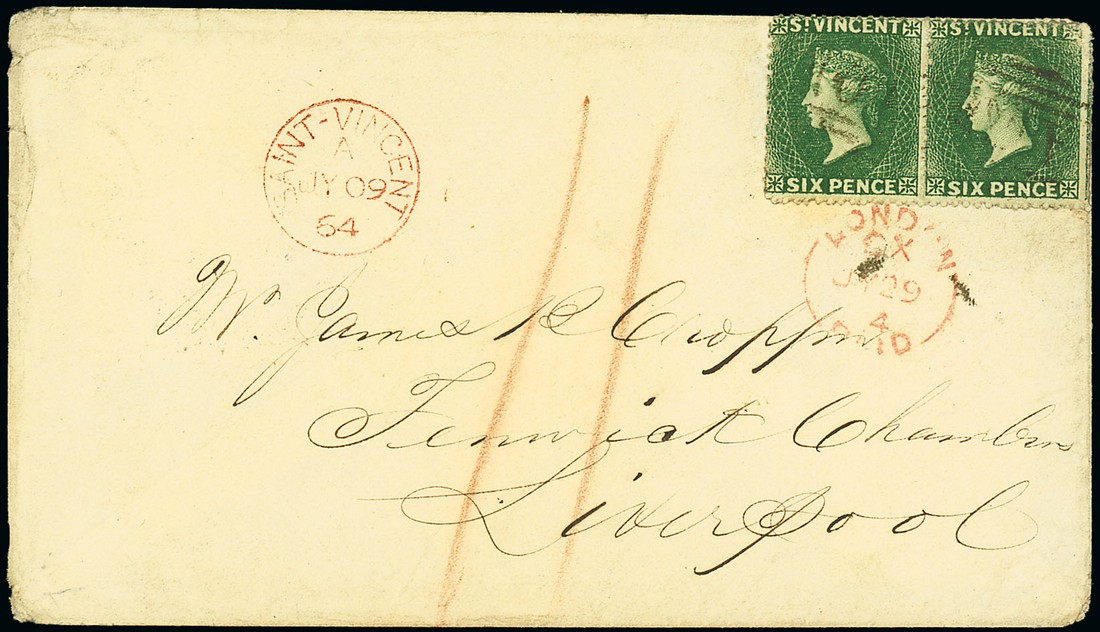 ST VINCENT ST VINCENT
SIX PENCE SIX PENCE
SAINT-VINCENT
A
JY 09
64
LONDON
JY 29
4
PAID
Mr. James R Cropper
Fenwick Chambers
Liverpool